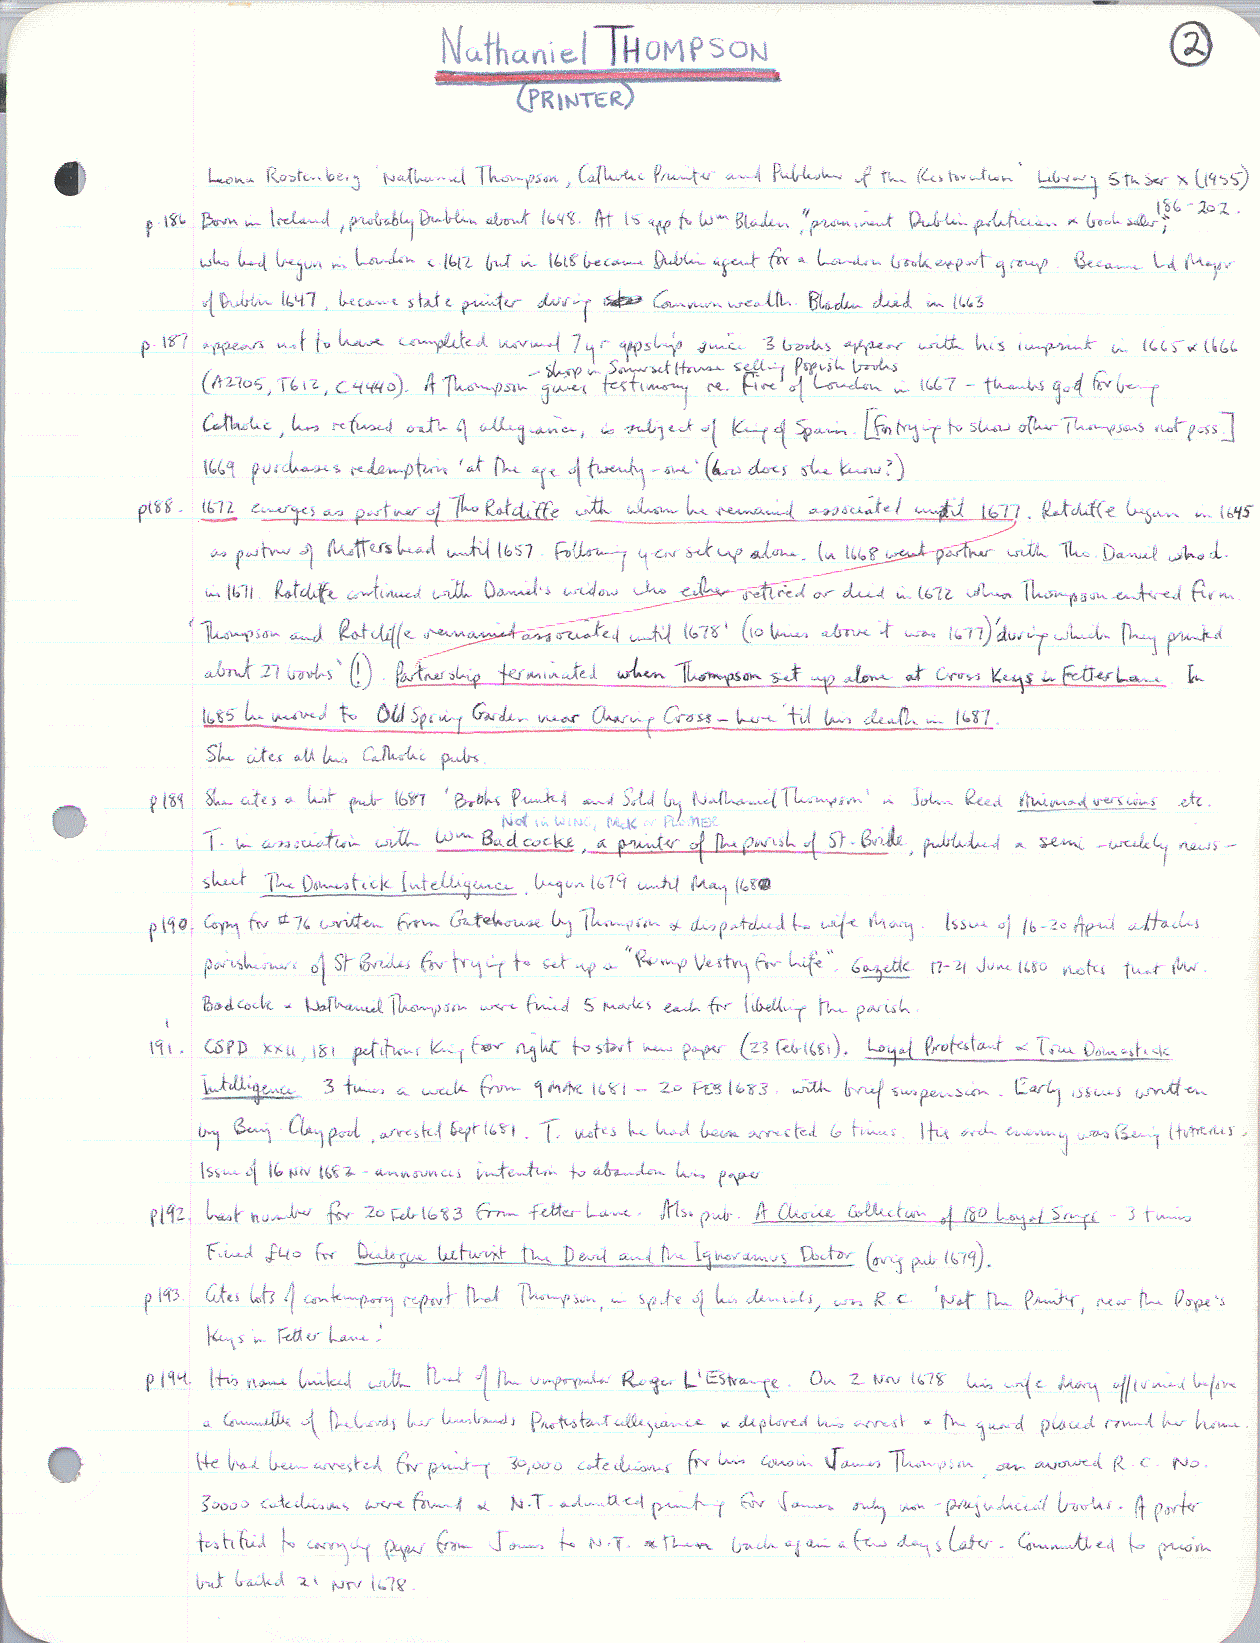 Nathaniel THOMPSON
②
(PRINTER)
Leona Rostenberg 'Nathaniel Thompson, Catholic Printer and Publisher of the Restoration' Library 5th ser X (1955)
186-202.
p.186 Born in Ireland, probably Dublin about 1648. At 15 app to Wm Bladen, "prominent Dublin politician & bookseller",
who had begun in London c 1612 but in 1618 became Dublin agent for a London book export group. Became Ld Mayor
of Dublin 1647, became state printer during Commonwealth. Bladen died in 1663
p.187 appears not to have completed normal 7 yr appship since 3 books appear with his imprint in 1665 & 1666
- shop in Somerset House selling Popish books
(A2705, T612, C4440). A Thompson gives testimony re. Fire of London in 1667 - thanks god for being
Catholic, has refused oath of allegiance, is subject of King of Spain. [For trying to show other Thompsons not poss.]
1669 purchases redemption 'at the age of twenty-one' (how does she know?)
p188. 1672 emerges as partner of Tho Ratcliffe with whom he remained associated until 1677. Ratcliffe began in 1645
as partner of Mottershead until 1657. Following year set up alone. In 1668 went partner with Tho. Daniel who d.
in 1671. Ratcliffe continued with Daniel's widow who either retired or died in 1672 when Thompson entered firm.
'Thompson and Ratcliffe remained associated until 1678' (10 lines above it was 1677) 'during which they printed
about 27 books' (!). Partnership terminated when Thompson set up alone at Cross Keys in Fetter Lane. In
1685 he moved to Old Spring Garden near Charing Cross - here 'til his death in 1687.
She cites all his Catholic pubs.
p189 She cites a list pub 1687 'Books Printed and Sold by Nathaniel Thompson' in John Reed Animadversions etc.
NOT IN WING, PACK OR PLOMER
T. in association with Wm Badcocke, a printer of the parish of St. Bride, published a semi-weekly news-
sheet The Domestick Intelligence, begun 1679 until May 1680
p190. Copy for #76 written from Gatehouse by Thompson & dispatched to wife Mary. Issue of 16-20 April attacks
parishioners of St Brides for trying to set up a "Rump Vestry for Life". Gazette 17-21 June 1680 notes that Mr.
Badcock & Nathaniel Thompson were fined 5 marks each for libelling the parish.
191. CSPD XXII, 181 petitions King for right to start new paper (23 Feb 1681). Loyal Protestant & True Domestick
Intelligence 3 times a week from 9 MAR 1681 - 20 FEB 1683. with brief suspension. Early issues written
by Benj. Claypool, arrested Sept 1681. T. notes he had been arrested 6 times. His arch enemy was Benj HARRIS.
Issue of 16 Nov 1682 - announces intention to abandon his paper
p192. Last number for 20 Feb 1683 from Fetter Lane. Also pub. A Choice Collection of 180 Loyal Songs - 3 times
Fined £40 for Dialogue betwixt the Devil and the Ignoramus Doctor (orig pub 1679).
p193. Cites lots of contempory report that Thompson, in spite of his denials, was R.C. 'Nat the Printer, near the Pope's
Keys in Fetter Lane.'
p194. His name linked with that of the unpopular Roger L'Estrange. On 2 Nov 1678 his wife Mary affirmed before
a Committee of the Lords her husbands Protestant allegiance & deplored his arrest & the guard placed round her home.
He had been arrested for printing 30,000 catechisms for his cousin James Thompson, an avowed R.C. No.
30000 catechisms were found & N.T. admitted printing for James only non-prejudicial books. A porter
testified to carrying paper from James to N.T. & them back again a few days later. Committed to prison
but bailed 21 Nov 1678.